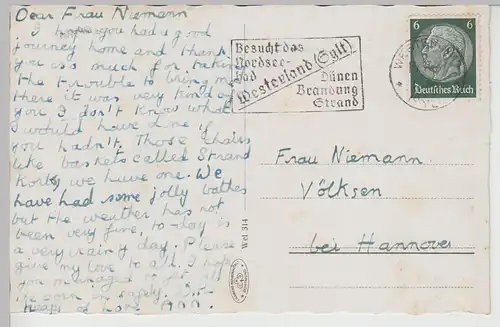 Dear Frau Niemann
I hope you had a good
journey home and thank
you so much for taking
the trouble to bring me
there it was very kind of
you I don't know what
I would have done if
you hadn't. Those chairs
like baskets called Strand
Korbs we have one. We
have had some jolly bathes
but the weather has not
been very fine, to-day is
a very rainy day. Please
give my love to all. I hope
you managed to get all
the corn in safely.
heaps of love
Besucht das
Nordsee-
bad
Westerland (Sylt)
Dünen
Brandung
Strand
6 6
Deutsches Reich
Frau Niemann
Völksen
bei Hannover
Wd 314